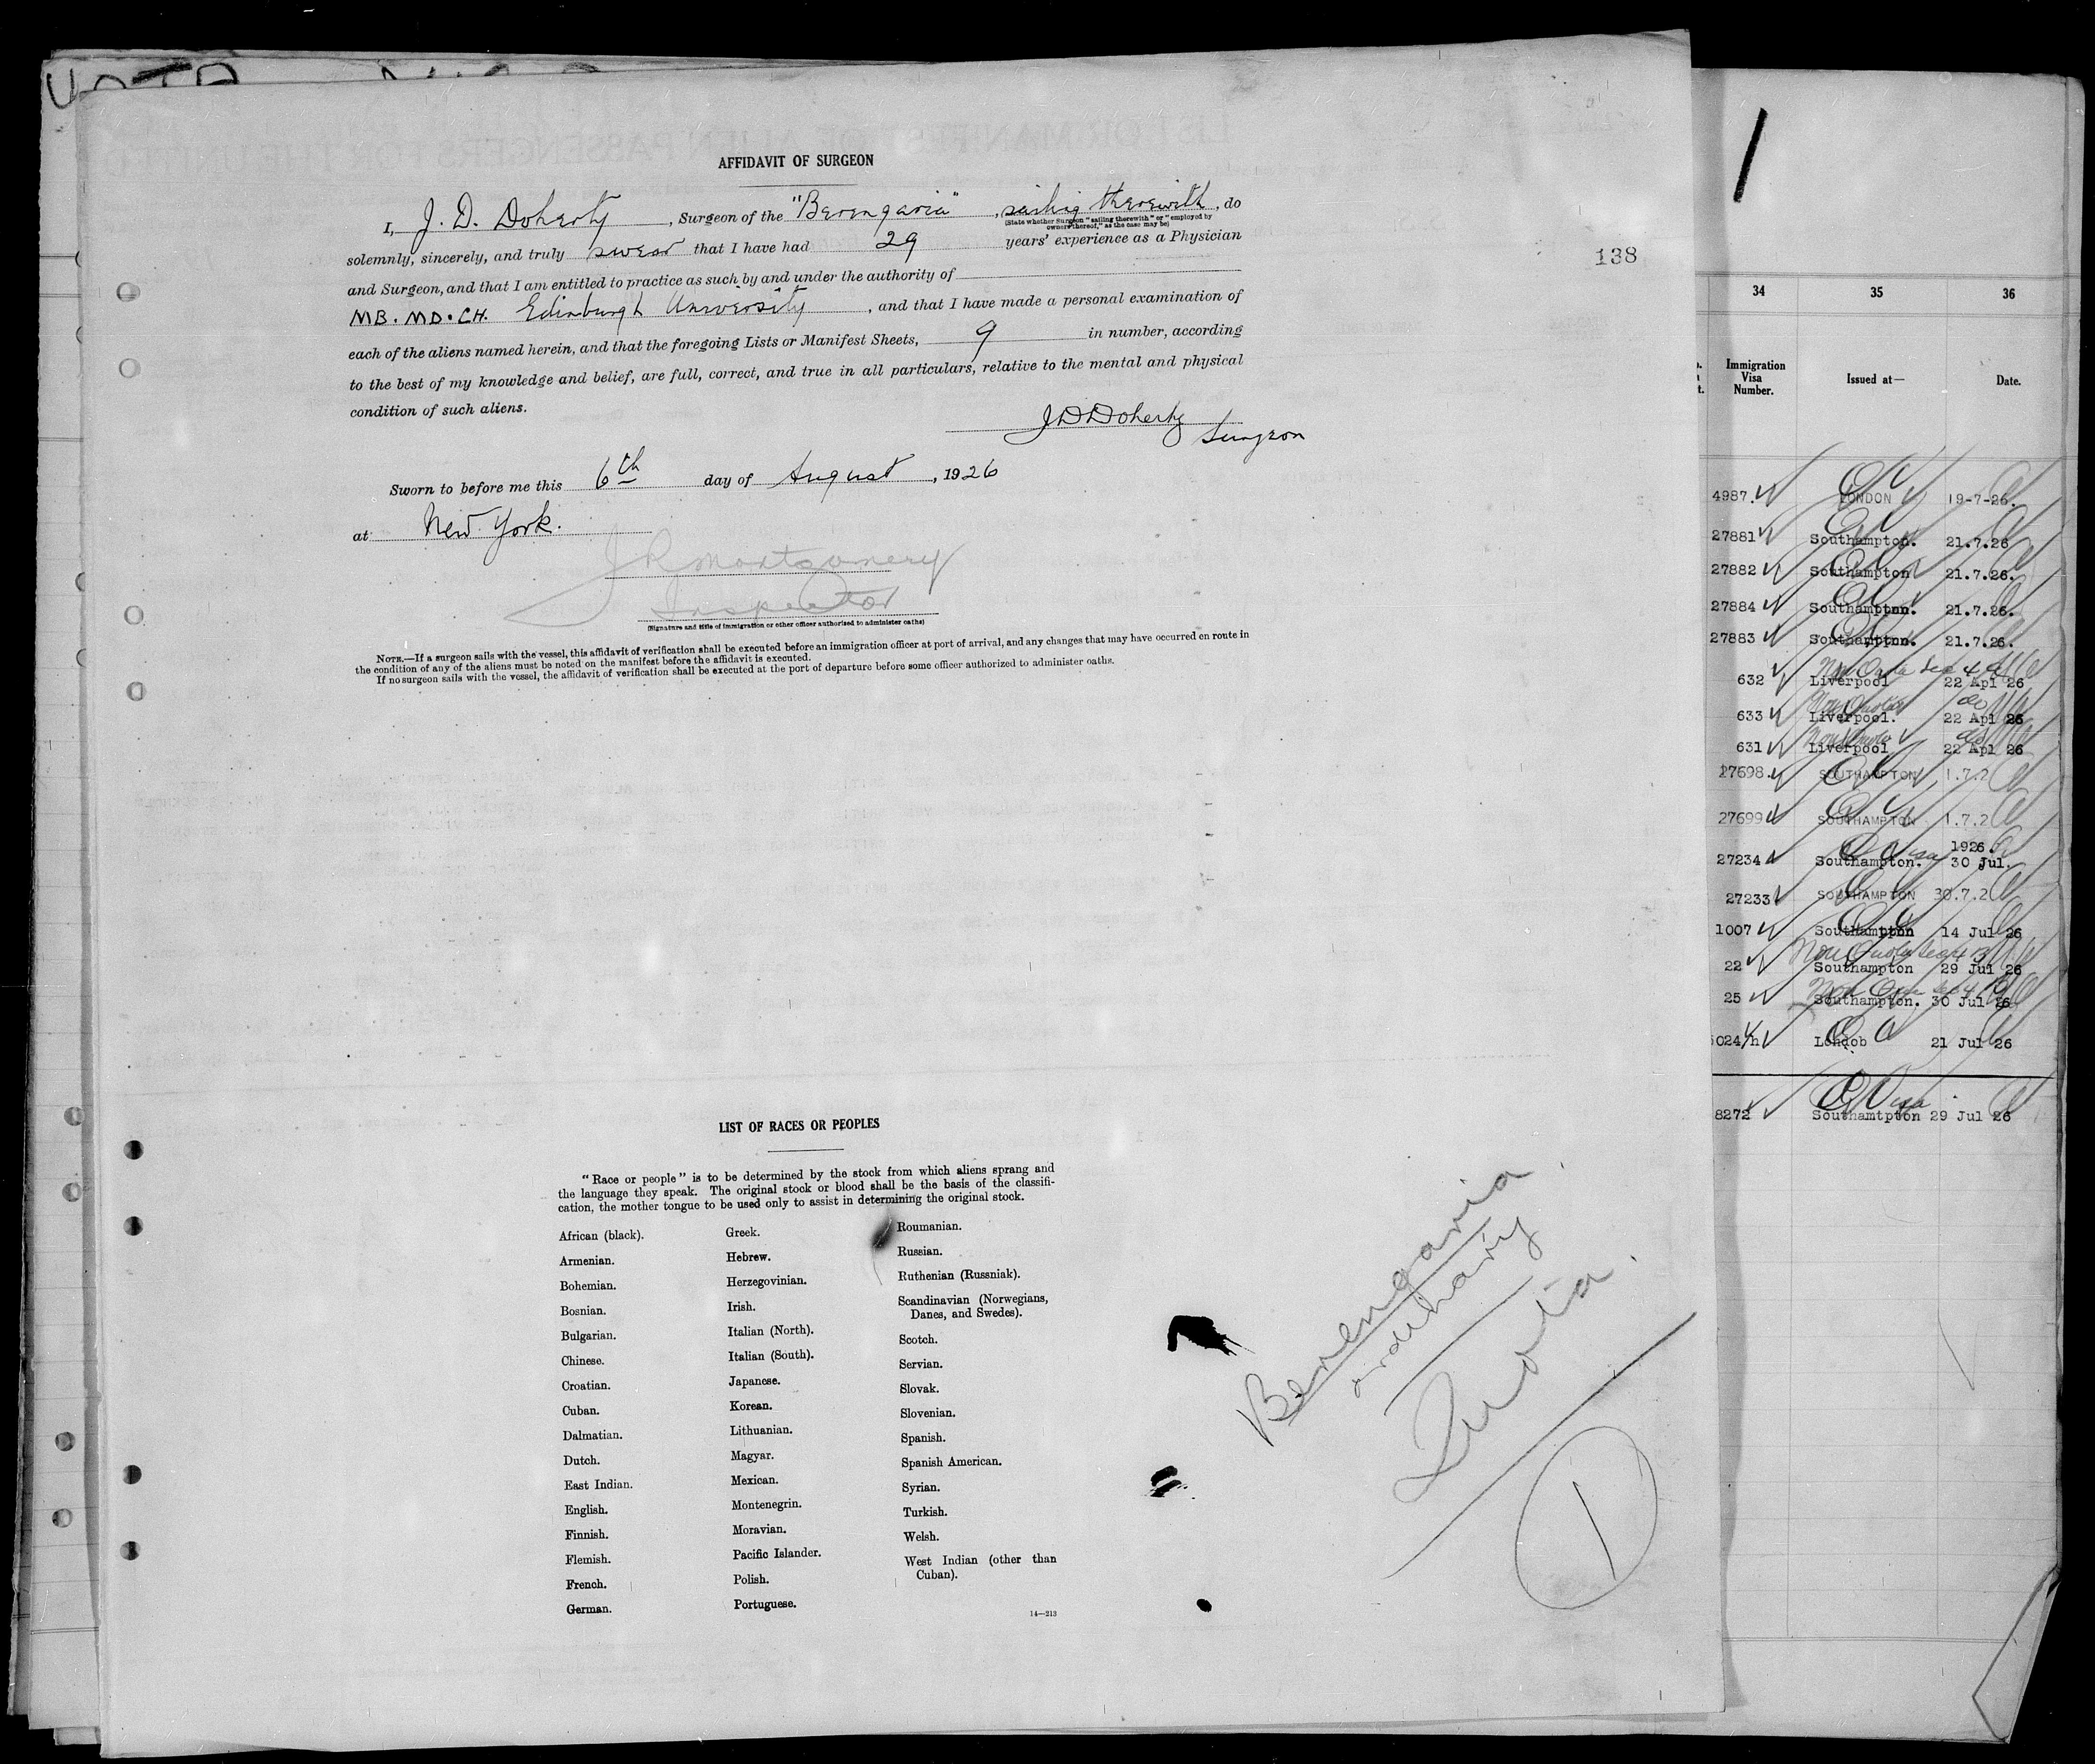 AFFIDAVIT OF SURGEON
I, J. D. Doherty, Surgeon of the "Berengaria", sailing therewith, do
(State whether Surgeon "sailing therewith" or "employed by
owners thereof," as the case may be)
solemnly, sincerely, and truly swear that I have had 29 years' experience as a Physician
and Surgeon, and that I am entitled to practice as such by and under the authority of
MB. MD. CH. Edinburgh University, and that I have made a personal examination of
each of the aliens named herein, and that the foregoing Lists or Manifest Sheets, 9 in number, according
to the best of my knowledge and belief, are full, correct, and true in all particulars, relative to the mental and physical
condition of such aliens.
J D Doherty
Surgeon
Sworn to before me this 6th day of August, 1926
at New York.
J R Montgomery
Inspector
(Signature and title of immigration or other officer authorized to administer oaths)
NOTE.—If a surgeon sails with the vessel, this affidavit of verification shall be executed before an immigration officer at port of arrival, and any changes that may have occurred en route in
the condition of any of the aliens must be noted on the manifest before the affidavit is executed.
If no surgeon sails with the vessel, the affidavit of verification shall be executed at the port of departure before some officer authorized to administer oaths.
138
LIST OF RACES OR PEOPLES
"Race or people" is to be determined by the stock from which aliens sprang and
the language they speak. The original stock or blood shall be the basis of the classifi-
cation, the mother tongue to be used only to assist in determining the original stock.
African (black).
Armenian.
Bohemian.
Bosnian.
Bulgarian.
Chinese.
Croatian.
Cuban.
Dalmatian.
Dutch.
East Indian.
English.
Finnish.
Flemish.
French.
German.
Greek.
Hebrew.
Herzegovinian.
Irish.
Italian (North).
Italian (South).
Japanese.
Korean.
Lithuanian.
Magyar.
Mexican.
Montenegrin.
Moravian.
Pacific Islander.
Polish.
Portuguese.
Roumanian.
Russian.
Ruthenian (Russniak).
Scandinavian (Norwegians,
Danes, and Swedes).
Scotch.
Servian.
Slovak.
Slovenian.
Spanish.
Spanish American.
Syrian.
Turkish.
Welsh.
West Indian (other than
Cuban).
14—213
Berengaria
ordinary
Quota.
1
34 35 36
Immigration
Visa
Number.
Issued at—
Date.
4987. LONDON 19-7-26.
27881 Southampton. 21.7.26
27882 Southampton 21.7.26.
27884 Southamptnn. 21.7.26.
27883 Southamptnn. 21.7.26.
Non Quota Sec 4
632 Liverpool 22 Apl 26
Non Quota do
633 Liverpool. 22 Apl 26
Non Quota do
631 Liverpool 22 Apl 26
27698. SOUTHAMPTON 1.7.2
27699 SOUTHAMPTON 1.7.2
1926.
27234 Southampton. 30 Jul.
27233 SOUTHAMPTON 30.7.2
1007 Southamptpn 14 Jul 26
Non Quota Sec 4 B
22 Southampton 29 Jul 26
Non Quota Sec 4
25 Southampton. 30 Jul 26
024/n Londob 21 Jul 26
8272 Southamtpton 29 Jul 26